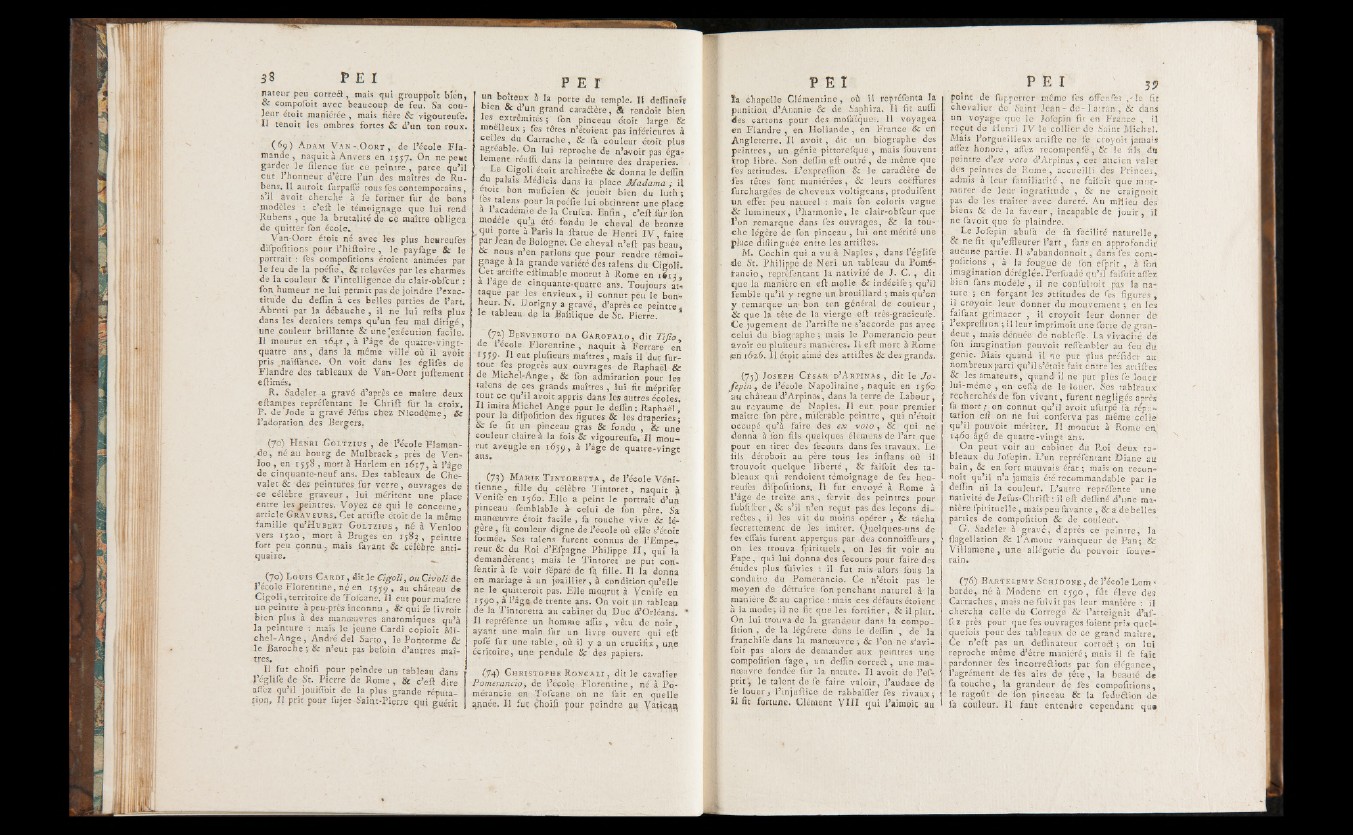 38 PEI
nateur peu correct, mais qui grouppoit bien,
& compofoit avec beaucoup de feu. Sa cou-
leur étoit maniérée, mais fière & vigoureufe.
Il tenoit les ombres fortes & d'un ton roux.
(69) ADAM VAN-OORT, de l'école Fla-
mande, naquit à Anvers en 1557. On ne peut
garder le filence fur ce peintre, parce qu'il
eut l'honneur d'être l'un des maîtres de Ru-
bens. Il auroit furpaffé tous fes contemporains,
s'il avoit cherché à fe former fur de bons
modèles : c'eft le témoignage que lui rend
Rubens, que la brutalité de ce maître obligea
de quitter fon école.
Van-Oort étoit né avec les plus heureufes
difpofitions pour l'hiftoire, le payfage & le
portrait : fes compofitions étoient animées par
le feu de la poéfie, & relevées par les charmes
de la couleur & l'intelligence du clair-obfcur :
fon humeur ne lui permit pas de joindre l'exac-
titude du deffin à ces belles parties de l'art.
Abruti par la débauche, il ne lui refta plus
dans les derniers temps qu'un feu mal dirigé,
une couleur brillante & une exécution facile.
Il mourut en 1641, à l'âge de quatre-vingt-
quatre ans, dans la même ville où il avoit
pris naiffance. On voit dans les églifes de
Flandre des tableaux de Van-Oort juftement
eftimés.
R. Sadeler a gravé d'après ce maître deux
eftampes repréfentant le Chrift fur la croix.
P. de Jode a gravé Jéfus chez Nicodême, &
l'adoration des Bergers.
(70) HENRI GOLTZIUS, de l'école Flaman-
de, né au bourg de Mulbrack, près de Ven-
loo, en 1558, mort à Harlem en 1617, à l'âge
de cinquante-neuf ans. Des tableaux de Che-
valet & des peintures fur verre, ouvrages de
ce célèbre graveur, lui méritent une place
entre les peintres. Voyez ce qui le concerne,
article GRAVEURS. Cet artifte étoit de la même
famille qu'HUBERT GOLTZIUS, né à Venloo
vers 1520, mort à Bruges en 1583, peintre
fort peu connu, mais favant & célèbre anti-
quaire.
(70) LOUIS CARDI, dit le Cigoli, ou Civoli de
l'école Florentine, né en 1559, au château de
Cigoli, territoire de Tofcane. Il eut pour maître
un peintre à peu-près inconnu, & qui fe livroit
bien plus à des manœuvres anatomiques qu'à
la peinture : mais le jeune Cardi copioit Mi-
chel-Ange, André del Sarto, le Pontorme &
le Baroche ; & n'eut pas befoin d'autres maî-
tres.
Il fut choifi pour peindre un tableau dans
l'églife de St. Pierre de Rome, & c'eft dire
affez qu'il jouiffoit de la plus grande réputa-
tion. Il prit pour fujet Saint-Pierre qui guérit
PEI
un boiteux à la porte du temple. Il deffinoit
bien & d'un grand caractère, & rendoit bien
les extrémités ; fon pinceau étoit large &
moëlleux ; fes têtes n'étoient pas inférieures à
celles du Carrache, & fa couleur étoit plus
agréable. On lui reproche de n'avoit pas éga-
lement réuffi dans la peinture des draperies.
Le Cigoli étoit architecte & donna le deffin
du palais Médicis dans la place Madama ; il
étoit bon muficien & jouoit bien du luth ;
fes talens pour la poéfie lui obtinrent une place
à l'académie de la Crufca. Enfin, c'eft fur fon
modèle qu'a été fondu le cheval de bronze
qui porte à Paris la ftatue de Henri IV, faite
par Jean de Bologne. Ce cheval n'eft pas beau,
& nous n'en parlons que pour rendre témoi-
gnage à la grande variété des talens du Cigoli.
Cet artifte eftimable mourut à Rome en 1613,
à l'âge de cinquante-quatre ans. Toujours at-
taqué par les envieux, il connut peu le bon-
heur. N. Dorigny a gravé, d'après ce peintre,
le tableau de la Bafilique de St. Pierre.
(72) BENVENUTO DA GAROFALO, dit Tifio,
de l'école Florentine, naquit à Ferrare en
1559. Il eut plufieurs maîtres, mais il dut fur-
tout fes progrès aux ouvrages de Raphaël &
de Michel-Ange, & fon admiration pour les
talens de ces grands maîtres, lui fit méprifer
tout ce qu'il avoit appris dans les autres écoles.
Il imita Michel-Ange pour le deffin ; Raphaël,
pour la difpofition des figures & les draperies ;
& fe fit un pinceau gras & fondu, & une
couleur claire à la fois & vigoureufe. Il mou-
rut aveugle en 1659, à l'âge de quatre-vingt
ans.
(73) MARIE TINTORETTA, de l'école Véni-
tienne, fille du célèbre Tintoret, naquit à
Venife en 1560. Elle a peint le portrait d'un
pinceau femblable à celui de fon père. Sa
manœuvre étoit facile, fa touche vive & lé-
gère, fa couleur digne de l'école où elle s'étoit
formée. Ses talens furent connus de l'Empe-
reur & du Roi d'Efpagne Philippe II, qui la
demandèrent ; mais le Tintoret ne put con-
fentir à fe voir féparé de fa fille. Il la donna
en mariage à un joaillier, à condition qu'elle
ne le quitteroit pas. Elle mourut à Venife en
1590, à l'âge de trente ans. On voit un tableau
de la Tintoretta au cabinet du Duc d'Orléans.
Il repréfente un homme affis, vêtu de noir,
ayant une main fur un livre ouvert qui eft
pofé fur une table, où il y a un crucifix, une
écritoire, une pendule & des papiers.
(74) CHRISTOPHE RONCALI, dit le cavalier
Pomerancio, de l'école Florentine, né à Po-
mérancie en Tofcane on ne fait en quelle
année. Il fut choifi pour peindre au Vatican
PEI
la chapelle Clémentine, où il repréfenta la
punition d'Ananie & de Saphira. Il fit auffi
des cartons pour des mofaïques. Il voyagea
en Flandre, en Hollande, en France & en
Angleterre. Il avoit, dit un biographe des
peintres, un génie pittorefque, mais fouvent
trop libre. Son deffin eft outré, de même que
fes attitudes. L'expreffion & le caractère de
fes têtes font maniérées, & leurs coëffures
furchargées de cheveux voltigeans, produifent
un effet peu naturel : mais fon coloris vague
& lumineux, l'harmonie, le clair-obfcur que
l'on remarque dans fes ouvrages, & la tou-
che légère de fon pinceau, lui ont mérité une
place diftinguée entre les artiftes.
M. Cochin qui a vu à Naples, dans l'églife
de St. Philippe de Neri un tableau du Pomé-
rancio, repréfentant la nativité de J. C., dit
que la manière en eft molle & indécife ; qu'il
femble qu'il y regne un brouillard ; mais qu'on
y remarque un bon ton général de couleur,
& que la tête de la vierge eft très-gracieufe.
Ce jugement de l'artifte ne s'accorde pas avec
celui du biographe ; mais le Pomerancio peut
avoir eu plufieurs manières. Il eft mort à Rome
en 1626. Il étoit aimé des artiftes & des grands.
(75) JOSEPH CESAR D'ARPINAS, dit le Jo-
fepin, de l'école Napolitaine, naquit en 1560
au château d'Arpinas, dans la terre de Labour,
au royaume de Naples. Il eut pour premier
maître fon père, miférable peintre, qui n'étoit
occupé qu'à faire des ex voto, & qui ne
donna à fon fils quelques élémens de l'art que
pour en tirer des fecours dans fes travaux. Le
fils déroboit au père tous les inftans où il
trouvoit quelque liberté, & faifoit des ta-
bleaux qui rendoient témoignage de fes heu-
reufes difpofitions. Il fut envoyé à Rome à
l'âge de treize ans, fervit des peintres pour
fubfifter, & s'il n'en reçut pas des leçons di-
rectes, il les vit du moins opérer, & tâcha
fecrettement de les imiter. Quelques-uns de
fes effais furent apperçus par des connoiffeurs,
on les trouva fpirituels, on les fit voir au
Pape, qui lui donna des fecours pour faire des
études plus fuivies : il fut mis alors fous la
conduite du Pomerancio. Ce n'étoit pas le
moyen de détruire fon penchant naturel à la
manière & au caprice : mais ces défauts étoient
à la mode ; il ne fit que les fortifier, & il plut.
On lui trouva de la grandeur dans la compo-
fition, de la légéreté dans le deffin, de la
franchife dans la manœuvre ; & l'on ne s'avi-
foit pas alors de demander aux peintres une
compofition fage, un deffin correct, une ma-
nœuvre fondée fur la nature. Il avoit de l'ef-
prit, le talent de fe faire valoir, l'audace de
fe louer, l'injuftice de rabbaiffer fes rivaux ;
il fit fortune. Clément VIII qui l'aimoit au
PEI 39
point de fupporter même fes offenfes, le fit
chevalier de Saint Jean-de-Latran, & dans
un voyage que le Jofepin fit en France, il
reçut de Henri IV le collier de Saint Michel.
Mais l'orgueilleux artifte ne fe croyoit jamais
affez honoré, affez recompenfé, & le fils du
peintre d'ex voto d'Arpinas, cet ancien valet
des peintres de Rome, accueilli des Princes,
admis à leur familiarité, ne faifoit que mur-
murer de leur ingratitude, & ne craignoit
pas de les traiter avec dureté. Au milieu des
biens & de la faveur, incapable de jouir, il
ne favoit que fe plaindre.
Le Jofepin abufa de fa facilité naturelle,
& ne fit qu'effleurer l'art, fans en approfondir
aucune partie. Il s'abandonnoit, dans fes com-
pofitions, à la fougue de fon efprit, à fon
imagination déréglée. Perfuadé qu'il faifoit affez
bien fans modèle, il ne confultoit pas la na-
ture ; en forçant les attitudes de fes figures,
il croyoit leur donner du mouvement ; en les
faifant grimacer, il croyoit leur donner de
l'expreffion ; il leur imprimoit une forte de gran-
deur, mais dénuée de nobleffe. La vivacité de
fon imagination pouvoit reffembler au feu du
genie. Mais quand il ne put plus préfider au
nombreux parti qu'il s'étoit fait entre les artiftes
& les amateurs, quand il ne put plus fe louer
lui-même, on ceffa de le louer. Ses tableaux
recherchés de fon vivant, furent negligés après
fa mort ; on connut qu'il avoit ufurpé fa répu-
tation et on ne lui conferva pas même celle
qu'il pouvoit mériter. Il mourut à Rome en
1460 âgé de quatre-vingt ans.
On peut voir au cabinet du Roi deux ta-
bleaux du Jofepin. L'un repréfentant Diane au
bain, & en fort mauvais état ; mais on recon-
noît qu'il n'a jamais été recommandable par le
deffin ni la couleur. L'autre repréfente une
nativité de Jefus-Chrift : il eft deffiné d'une ma-
nière fpirituelle, mais peu favante, & a de belles
parties de compofition & de couleur.
G. Sadeler à gravé, d'après ce peintre, la
flagellation & l'Amour vainqueur de Pan ; &
Villamene, une allégorie du pouvoir fouve-
rain.
(76) BARTHELEMY SCHIDONE, de l'école Lom-
barde, né à Modene en 1590, fut éleve des
Carraches, mais ne fuivit pas leur manière : il
chercha celle du Correge & l'atteignit d'af-
fez près pour que fes ouvrages foient pris quel-
quefois pour des tableaux de ce grand maître.
Ce n'eft pas un deffinateur correct ; on lui
reproche même d'être maniéré ; mais il fe fait
pardonner fes incorrections par fon élégance,
l'agrément de fes airs de tête, la beauté de
fa touche, la grandeur de fes compofitions,
le ragoût de fon pinceau & la féduction de
fa couleur. Il faut entendre cependant que